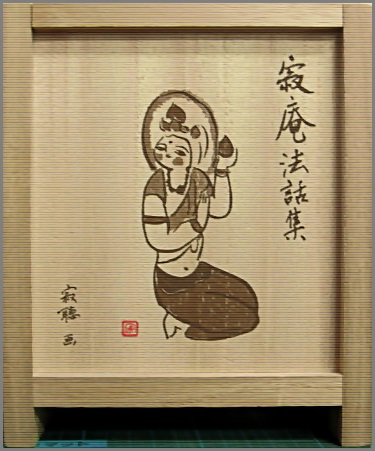 寂庵法話集
寂聴 画